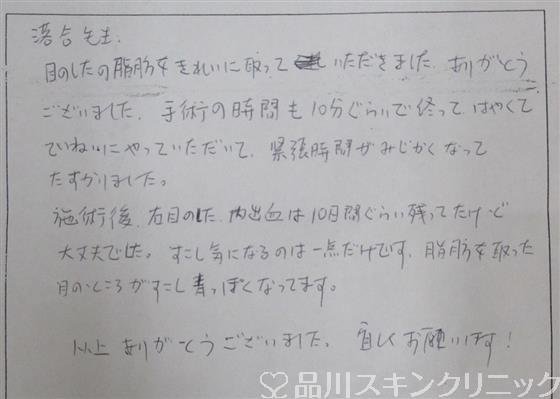 落合先生.
目のしたの脂肪をきれいに取って いただきました。ありがとう
ございました。手術の時間も10分ぐらいで終って、はやくて
ていねいにやっていただいて、緊張時間がみじかくなって
たすかりました。
施術後、右目のした、内出血は10日間ぐらい残ってたけど
大丈夫でした。すこし気になるのは一点だけです、脂肪を取った
目のところがすこし青っぽくなってます。
以上 ありがとうございました。 宜しくお願いします！
品川スキンクリニック